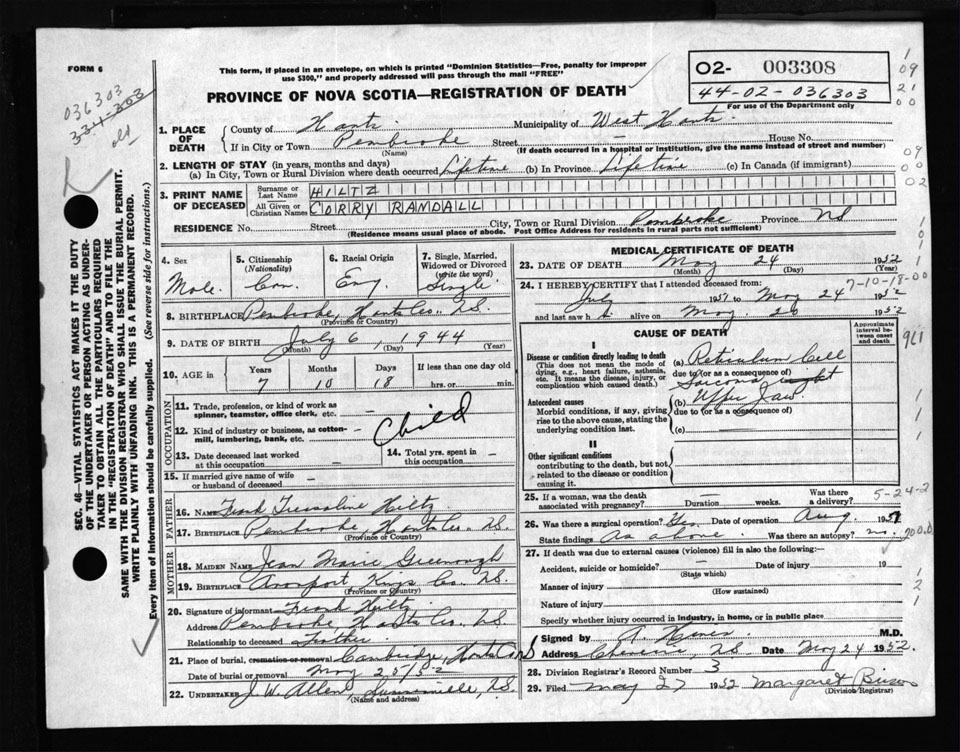 FORM 6
This form, if placed in an envelope, on which is printed "Dominion Statistics—Free, penalty for improper
use $300," and properly addressed will pass through the mail "FREE"
PROVINCE OF NOVA SCOTIA—REGISTRATION OF DEATH
02- 003308
44-02-036303
For use of the Department only
036303
334303
old
SEC. 46—VITAL STATISTICS ACT MAKES IT THE DUTY
OF THE UNDERTAKER OR PERSON ACTING AS UNDER-
TAKER TO OBTAIN ALL THE PARTICULARS REQUIRED
IN THE "REGISTRATION OF DEATH" AND TO FILE THE
SAME WITH THE DIVISION REGISTRAR WHO SHALL ISSUE THE BURIAL PERMIT.
WRITE PLAINLY WITH UNFADING INK. THIS IS A PERMANENT RECORD.
Every item of information should be carefully supplied. (See reverse side for instructions.)
1. PLACE OF DEATH
County of Hants Municipality of West Hants
If in City or Town Pembroke Street — House No.
(Name) (If death occurred in a hospital or institution, give the name instead of street and number)
2. LENGTH OF STAY (in years, months and days)
(a) In City, Town or Rural Division where death occurred Lifetime (b) In Province Lifetime (c) In Canada (if immigrant)
3. PRINT NAME OF DECEASED
Surname or Last Name HILTZ
All Given or Christian Names CORRY RANDALL
RESIDENCE No. Street City, Town or Rural Division Pembroke Province NS
(Residence means usual place of abode. Post Office Address for residents in rural parts not sufficient)
4. Sex Male
5. Citizenship (Nationality) Can.
6. Racial Origin Eng.
7. Single, Married, Widowed or Divorced (write the word) Single
8. BIRTHPLACE Pembroke, Hants Co., N.S.
(Province or Country)
9. DATE OF BIRTH July 6, 1944
(Month) (Day) (Year)
10. AGE in Years 7 Months 10 Days 18 If less than one day old
hrs. or min.
OCCUPATION
11. Trade, profession, or kind of work as spinner, teamster, office clerk, etc. —
12. Kind of industry or business, as cotton-mill, lumbering, bank, etc. —
Child
13. Date deceased last worked at this occupation —
14. Total yrs. spent in this occupation —
15. If married give name of wife or husband of deceased —
FATHER
16. NAME Frank Hiltz
17. BIRTHPLACE Pembroke, Hants Co., N.S.
(Province or Country)
MOTHER
18. MAIDEN NAME Jean Marie Greenough
19. BIRTHPLACE Avonport Kings Co. N.S.
(Province or Country)
20. Signature of informant Frank Hiltz
Address Pembroke, Hants Co., N.S.
Relationship to deceased Father
21. Place of burial, cremation or removal Cambridge, Hants Co NS
Date of burial or removal May 25/52
22. UNDERTAKER J. W. Allen, N.S.
(Name and address)
MEDICAL CERTIFICATE OF DEATH
23. DATE OF DEATH May 24 1952
(Month) (Day) (Year)
7-10-18-00
24. I HEREBY CERTIFY that I attended deceased from:
July 1951 to May 24 1952
and last saw h alive on May 1952
CAUSE OF DEATH
Approximate interval between cause and death
I
Disease or condition directly leading to death
(This does not mean the mode of dying, e.g., heart failure, asthenia, etc. It means the disease, injury, or complication which caused death.)
(a) Reticulum Cell
due to (or as a consequence of)
Sarcoma right
(b) Upper Jaw.
Antecedent causes
Morbid conditions, if any, giving rise to the above cause, stating the underlying condition last.
due to (or as a consequence of)
(c)
II
Other significant conditions
contributing to the death, but not related to the disease or condition causing it
25. If a woman, was the death associated with pregnancy? — Duration weeks. Was there a delivery?
5-24-2
26. Was there a surgical operation? Yes Date of operation Aug. 1951
State findings As above. Was there an autopsy? no.
27. If death was due to external causes (violence) fill in also the following:—
Accident, suicide or homicide? Date of injury 19
(State which)
Manner of injury
(How sustained)
Nature of injury
Specify whether injury occurred in industry, in home, or in public place
Signed by M.D.
Address Cheverie, NS Date May 24 1952.
28. Division Registrar's Record Number 3
29. Filed May 27 1952 Margaret
(Division Registrar)